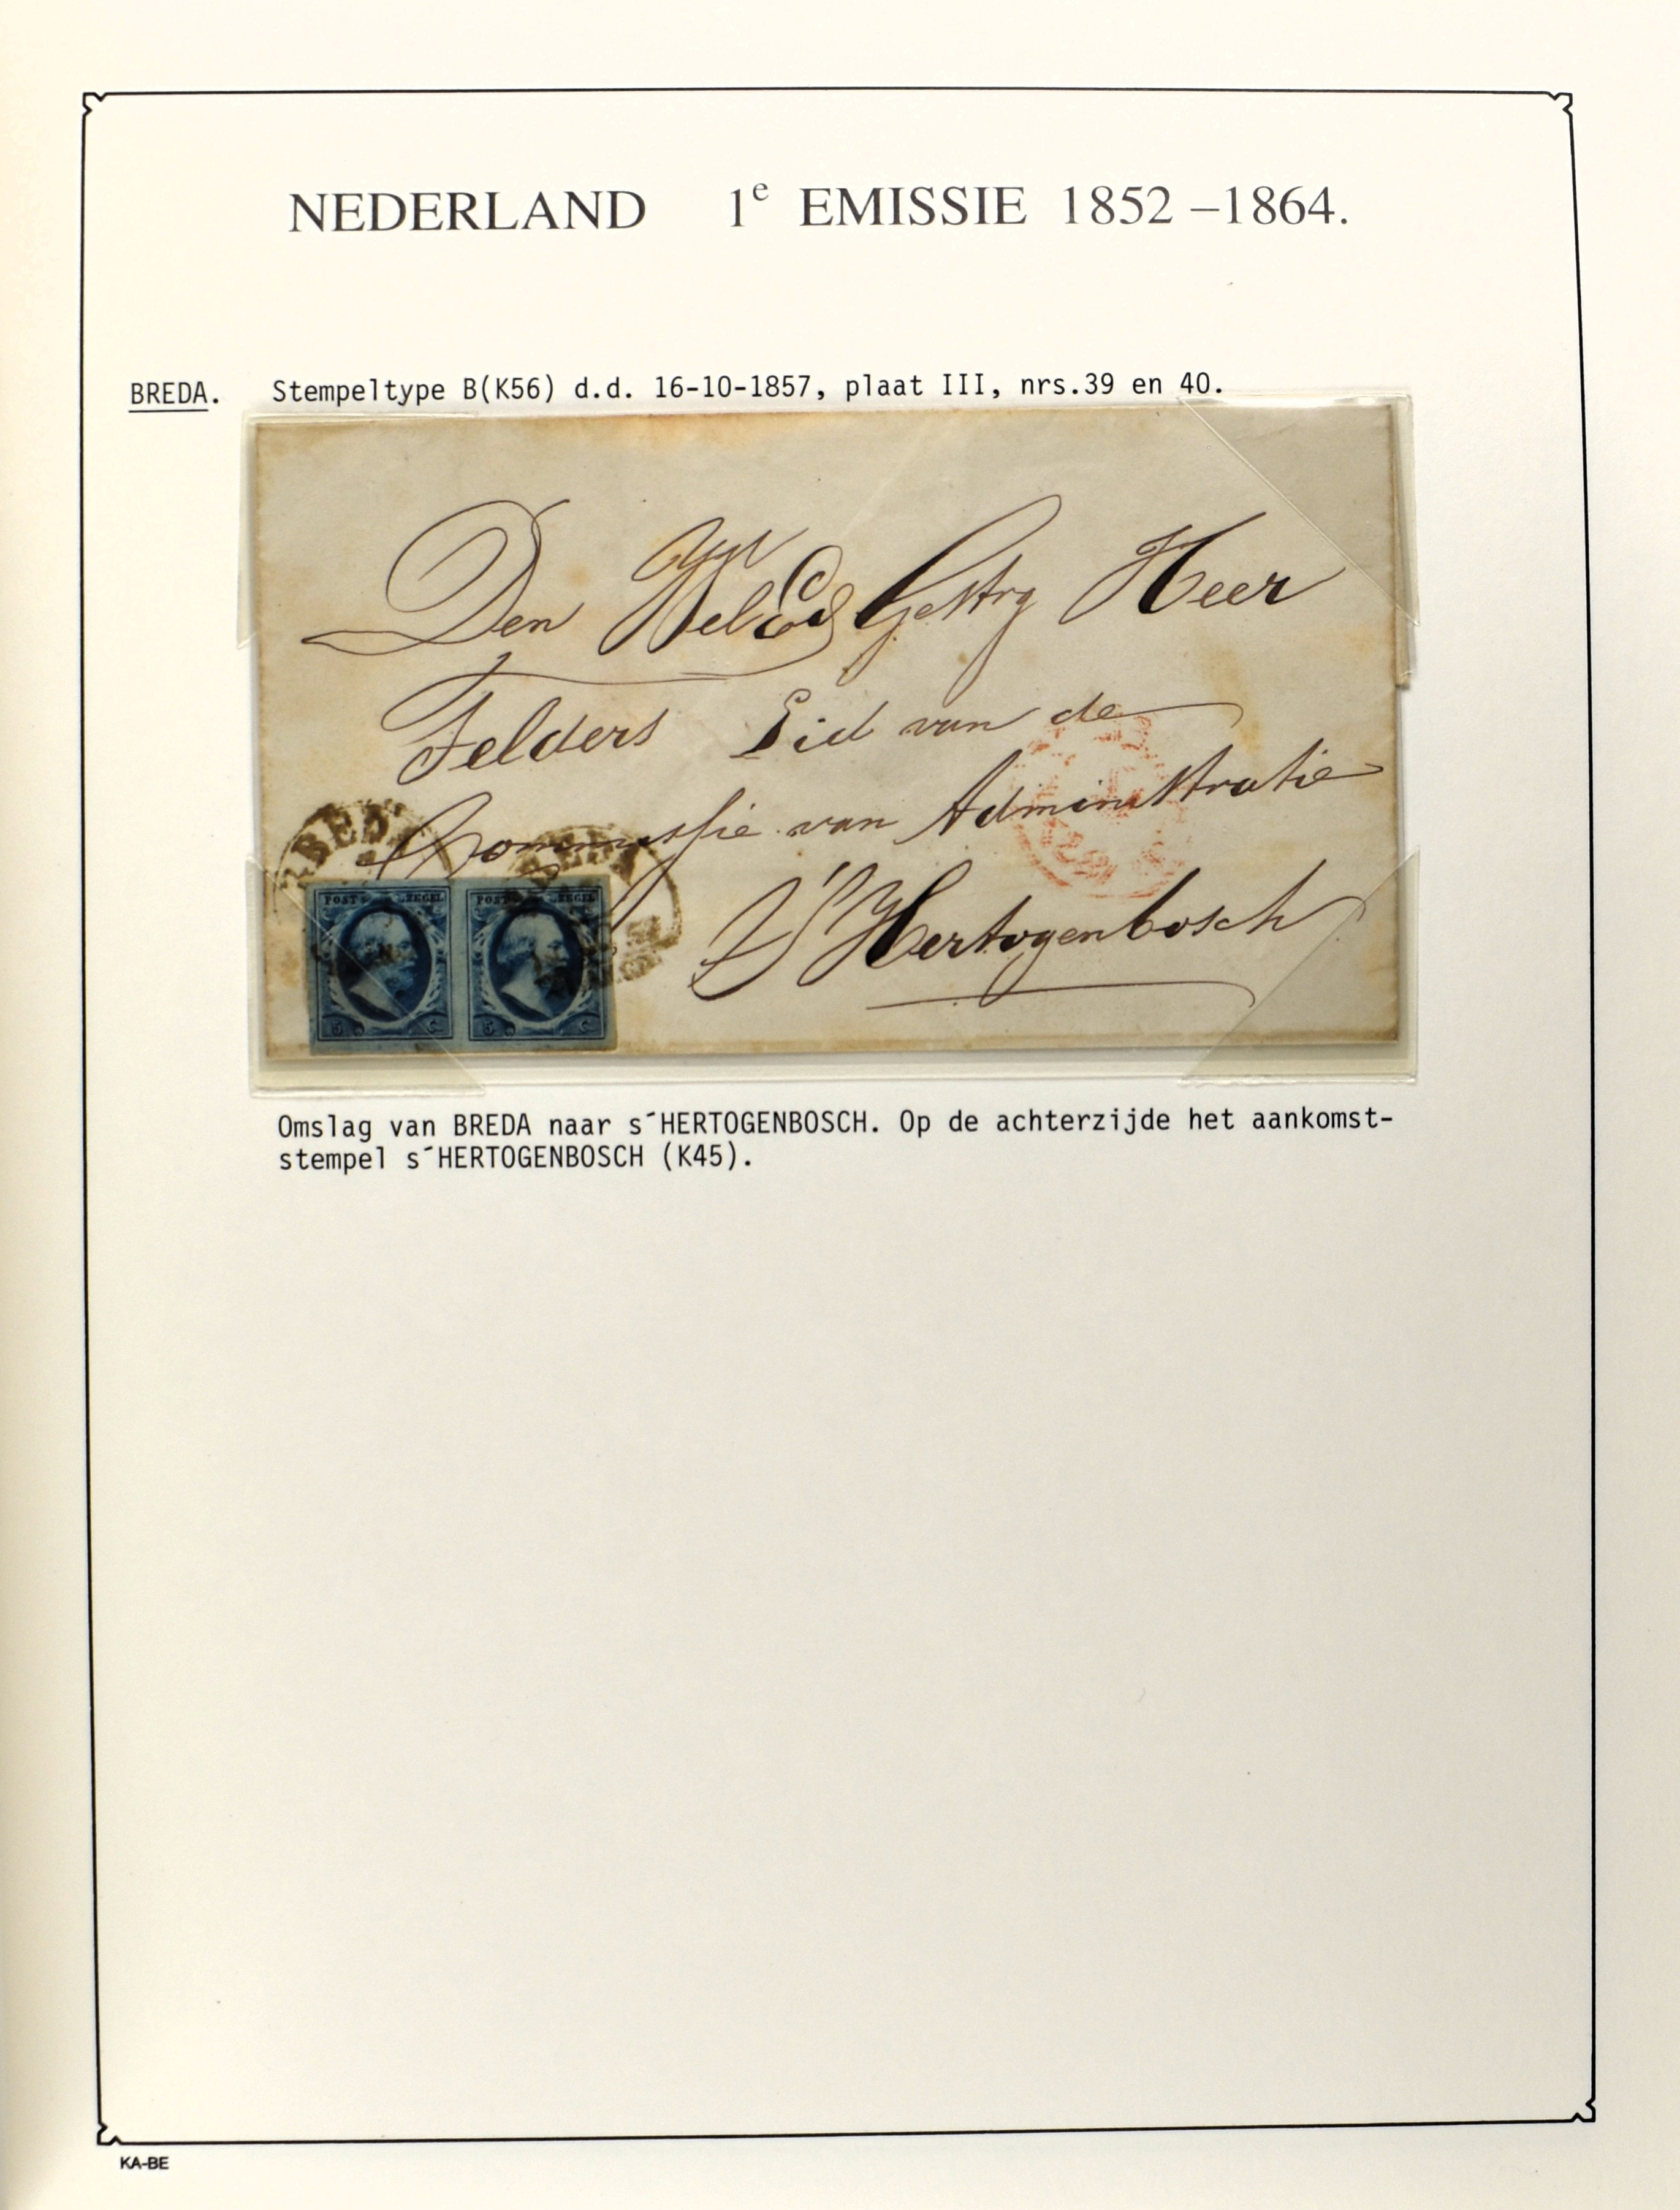 NEDERLAND 1e EMISSIE 1852 –1864.
BREDA. Stempeltype B(K56) d.d. 16-10-1857, plaat III, nrs.39 en 40.
Den WelEd Gestrg Heer
Felders Lid van de
Commissie van Administratie
S'Hertogenbosch
BREDA
BREDA
POST ZEGEL POST ZEGEL
5 C 5 C
Omslag van BREDA naar s´HERTOGENBOSCH. Op de achterzijde het aankomst-
stempel s´HERTOGENBOSCH (K45).
KA-BE